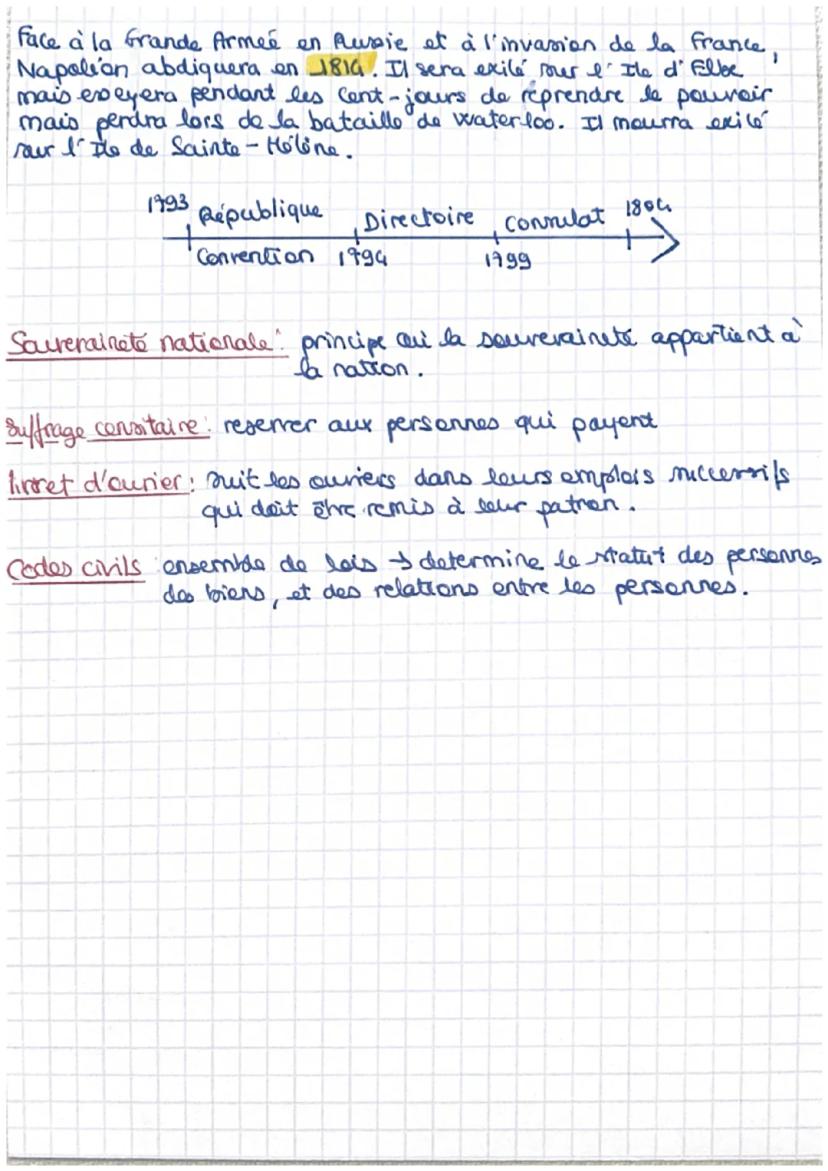 Face à la Grande Armée en Russie et à l'invasion de la France,
Napoléon abdiquera en 1814. Il sera exilé sur l'Ile d'Elbe
mais esseyera pendant les Cent-jours de reprendre le pouvoir
mais perdra lors de la bataille de Waterloo. Il mourra exilé
sur l'Ile de Sainte-Hélène.
1793 République Directoire Consulat 1804
Convention 1794 1799
Souveraineté nationale : principe où la souveraineté appartient à
la nation.
Suffrage censitaire : reserver aux personnes qui payent
livret d'ouvrier : suit les ouvriers dans leurs emplois successifs
qui doit être remis à leur patron.
Codes civils ensemble de lois → determine le statut des personnes
des biens, et des relations entre les personnes.